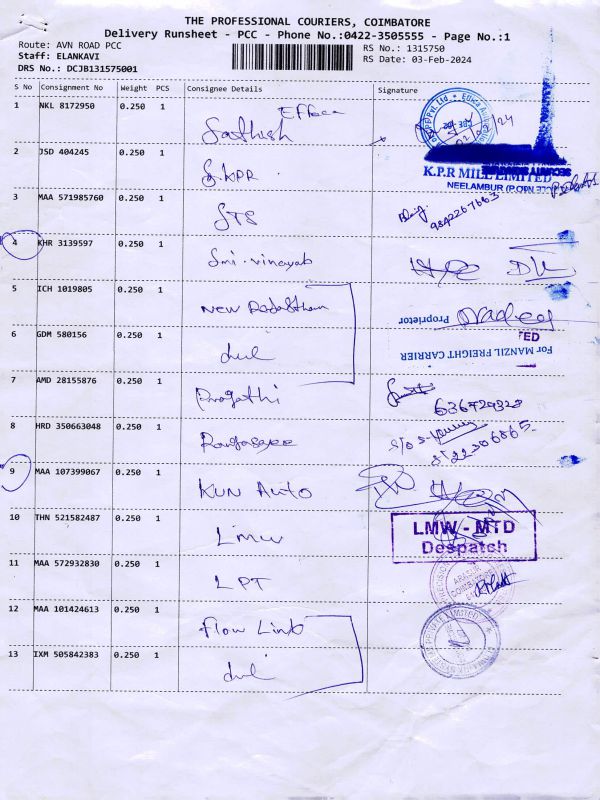 THE PROFESSIONAL COURIERS, COIMBATORE
Delivery Runsheet - PCC - Phone No.:0422-3505555 - Page No.:1
Route: AVN ROAD PCC
RS No.: 1315750
Staff: ELANKAVI
RS Date: 03-Feb-2024
DRS No.: DCJB131575001
S No Consignment No Weight PCS Consignee Details Signature
1 NKL 8172950 0.250 1 Sathish
2 JSD 404245 0.250 1 S.KPR
K.P.R MILL LIMITED
NEELAMBUR (P.O)
3 MAA 571985760 0.250 1 STS 9842267663
4 KHR 3139597 0.250 1 Smi. vinayab
5 ICH 1019805 0.250 1 New Rajasthan
Proprietor
6 GDM 580156 0.250 1
For MANZIL FREIGHT CARRIER
7 AMD 28155876 0.250 1 Pragathi
8 HRD 350663048 0.250 1
9 MAA 107399067 0.250 1 KUN Auto
10 THN 521582487 0.250 1 LMW
LMW - MTD
Despatch
11 MAA 572932830 0.250 1 LPT
12 MAA 101424613 0.250 1 Flow Link
13 IXM 505842383 0.250 1